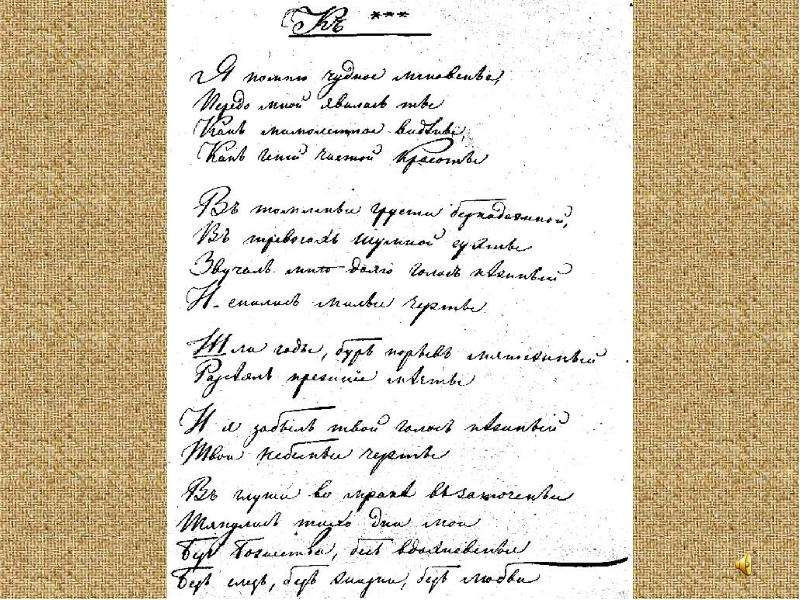 Къ ***
Я помню чудное мгновенье,
Передо мной явилась ты
Какъ мимолетное видѣнье,
Какъ геній чистой красоты
Въ томленьи грусти безнадежной,
Въ тревогахъ шумной суэты
Звучалъ мнѣ долго голосъ нѣжный
И снились милые черты
Шли годы, бурь порывъ мятежный
Разсѣялъ прежніе мечты
И я забылъ твой голосъ нѣжный
Твои небесные черты
Въ глуши во мракѣ заточенья
Тянулись тихо дни мои
Безъ Божества, безъ вдохновенья
Безъ слезъ, безъ жизни, безъ любви